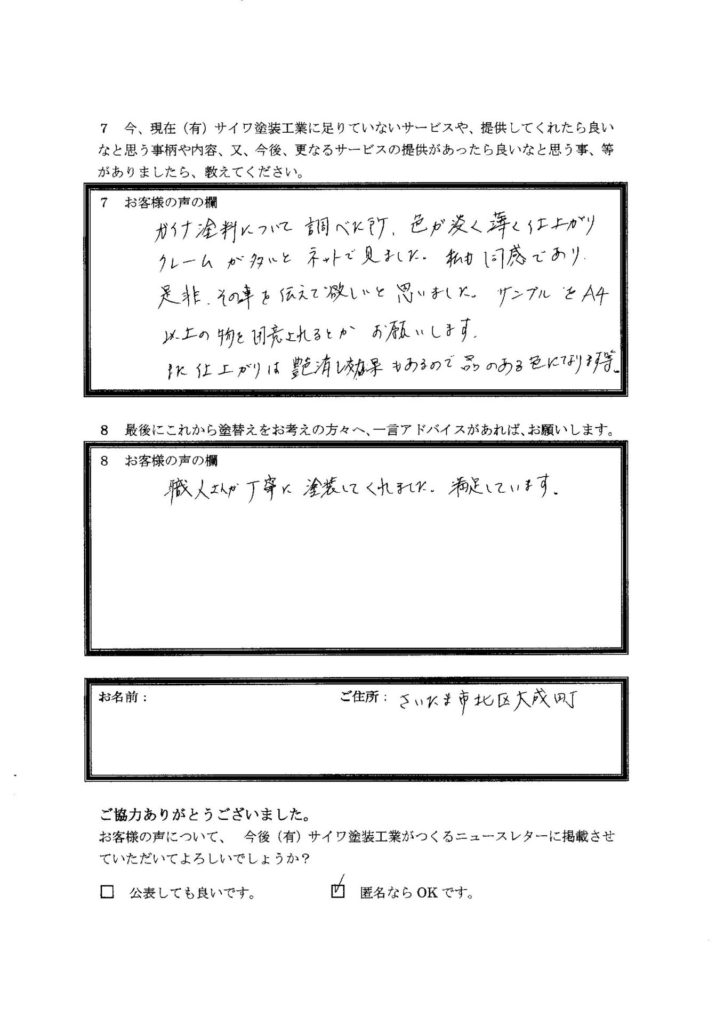 7 今、現在（有）サイワ塗装工業に足りていないサービスや、提供してくれたら良い
なと思う事柄や内容、又、今後、更なるサービスの提供があったら良いなと思う事、等
がありましたら、教えてください。
7 お客様の声の欄
ガイナ塗料について 調べた所、色が淡く薄く仕上がり
クレームが多いと ネットで見ました。私も同感であり、
是非、その事を伝えて欲しいと思いました。サンプルをA4
以上の物を用意されるとか お願いします。
また仕上がりは艶消し効果もあるので品のある色になります等。
8 最後にこれから塗替えをお考えの方々へ、一言アドバイスがあれば、お願いします。
8 お客様の声の欄
職人さんが丁寧に 塗装してくれました。満足しています。
お名前： ご住所： さいたま市北区大成町
ご協力ありがとうございました。
お客様の声について、 今後（有）サイワ塗装工業がつくるニュースレターに掲載させ
ていただいてよろしいでしょうか？
□ 公表しても良いです。 ☑ 匿名ならOKです。